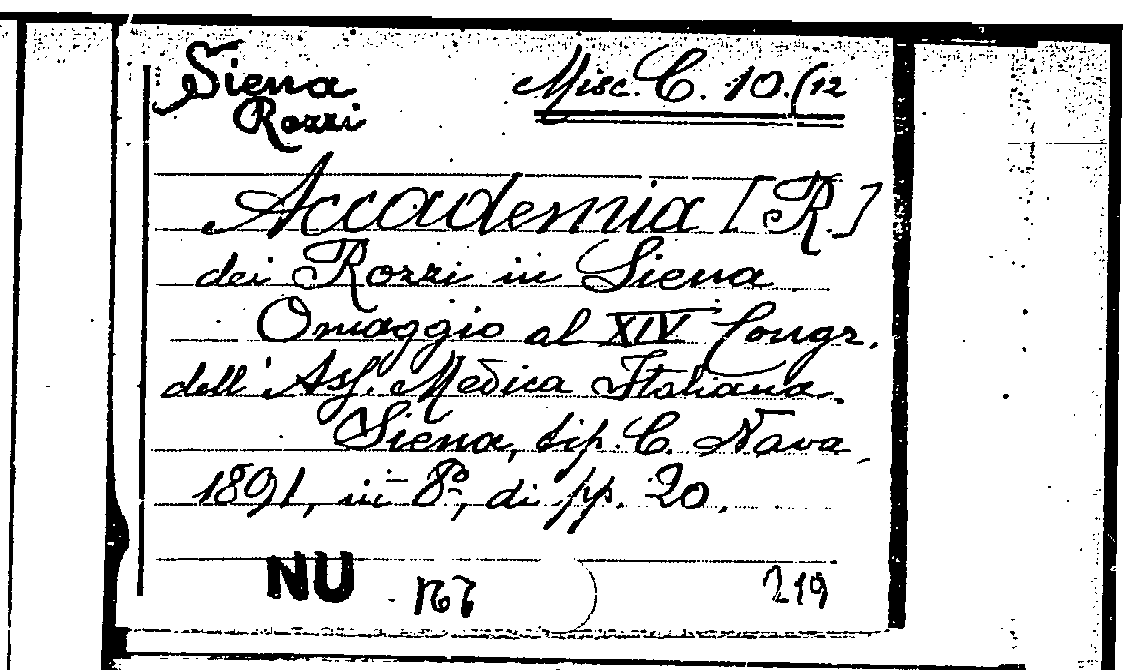 Siena Misc. C. 10.(12
Rozzi
Accademia [R.]
dei Rozzi in Siena
Omaggio al XIV Congr.
dell' Ass. Medica Italiana.
Siena, tip. C. Nava
1891, in 8°, di pp. 20.
NU 219